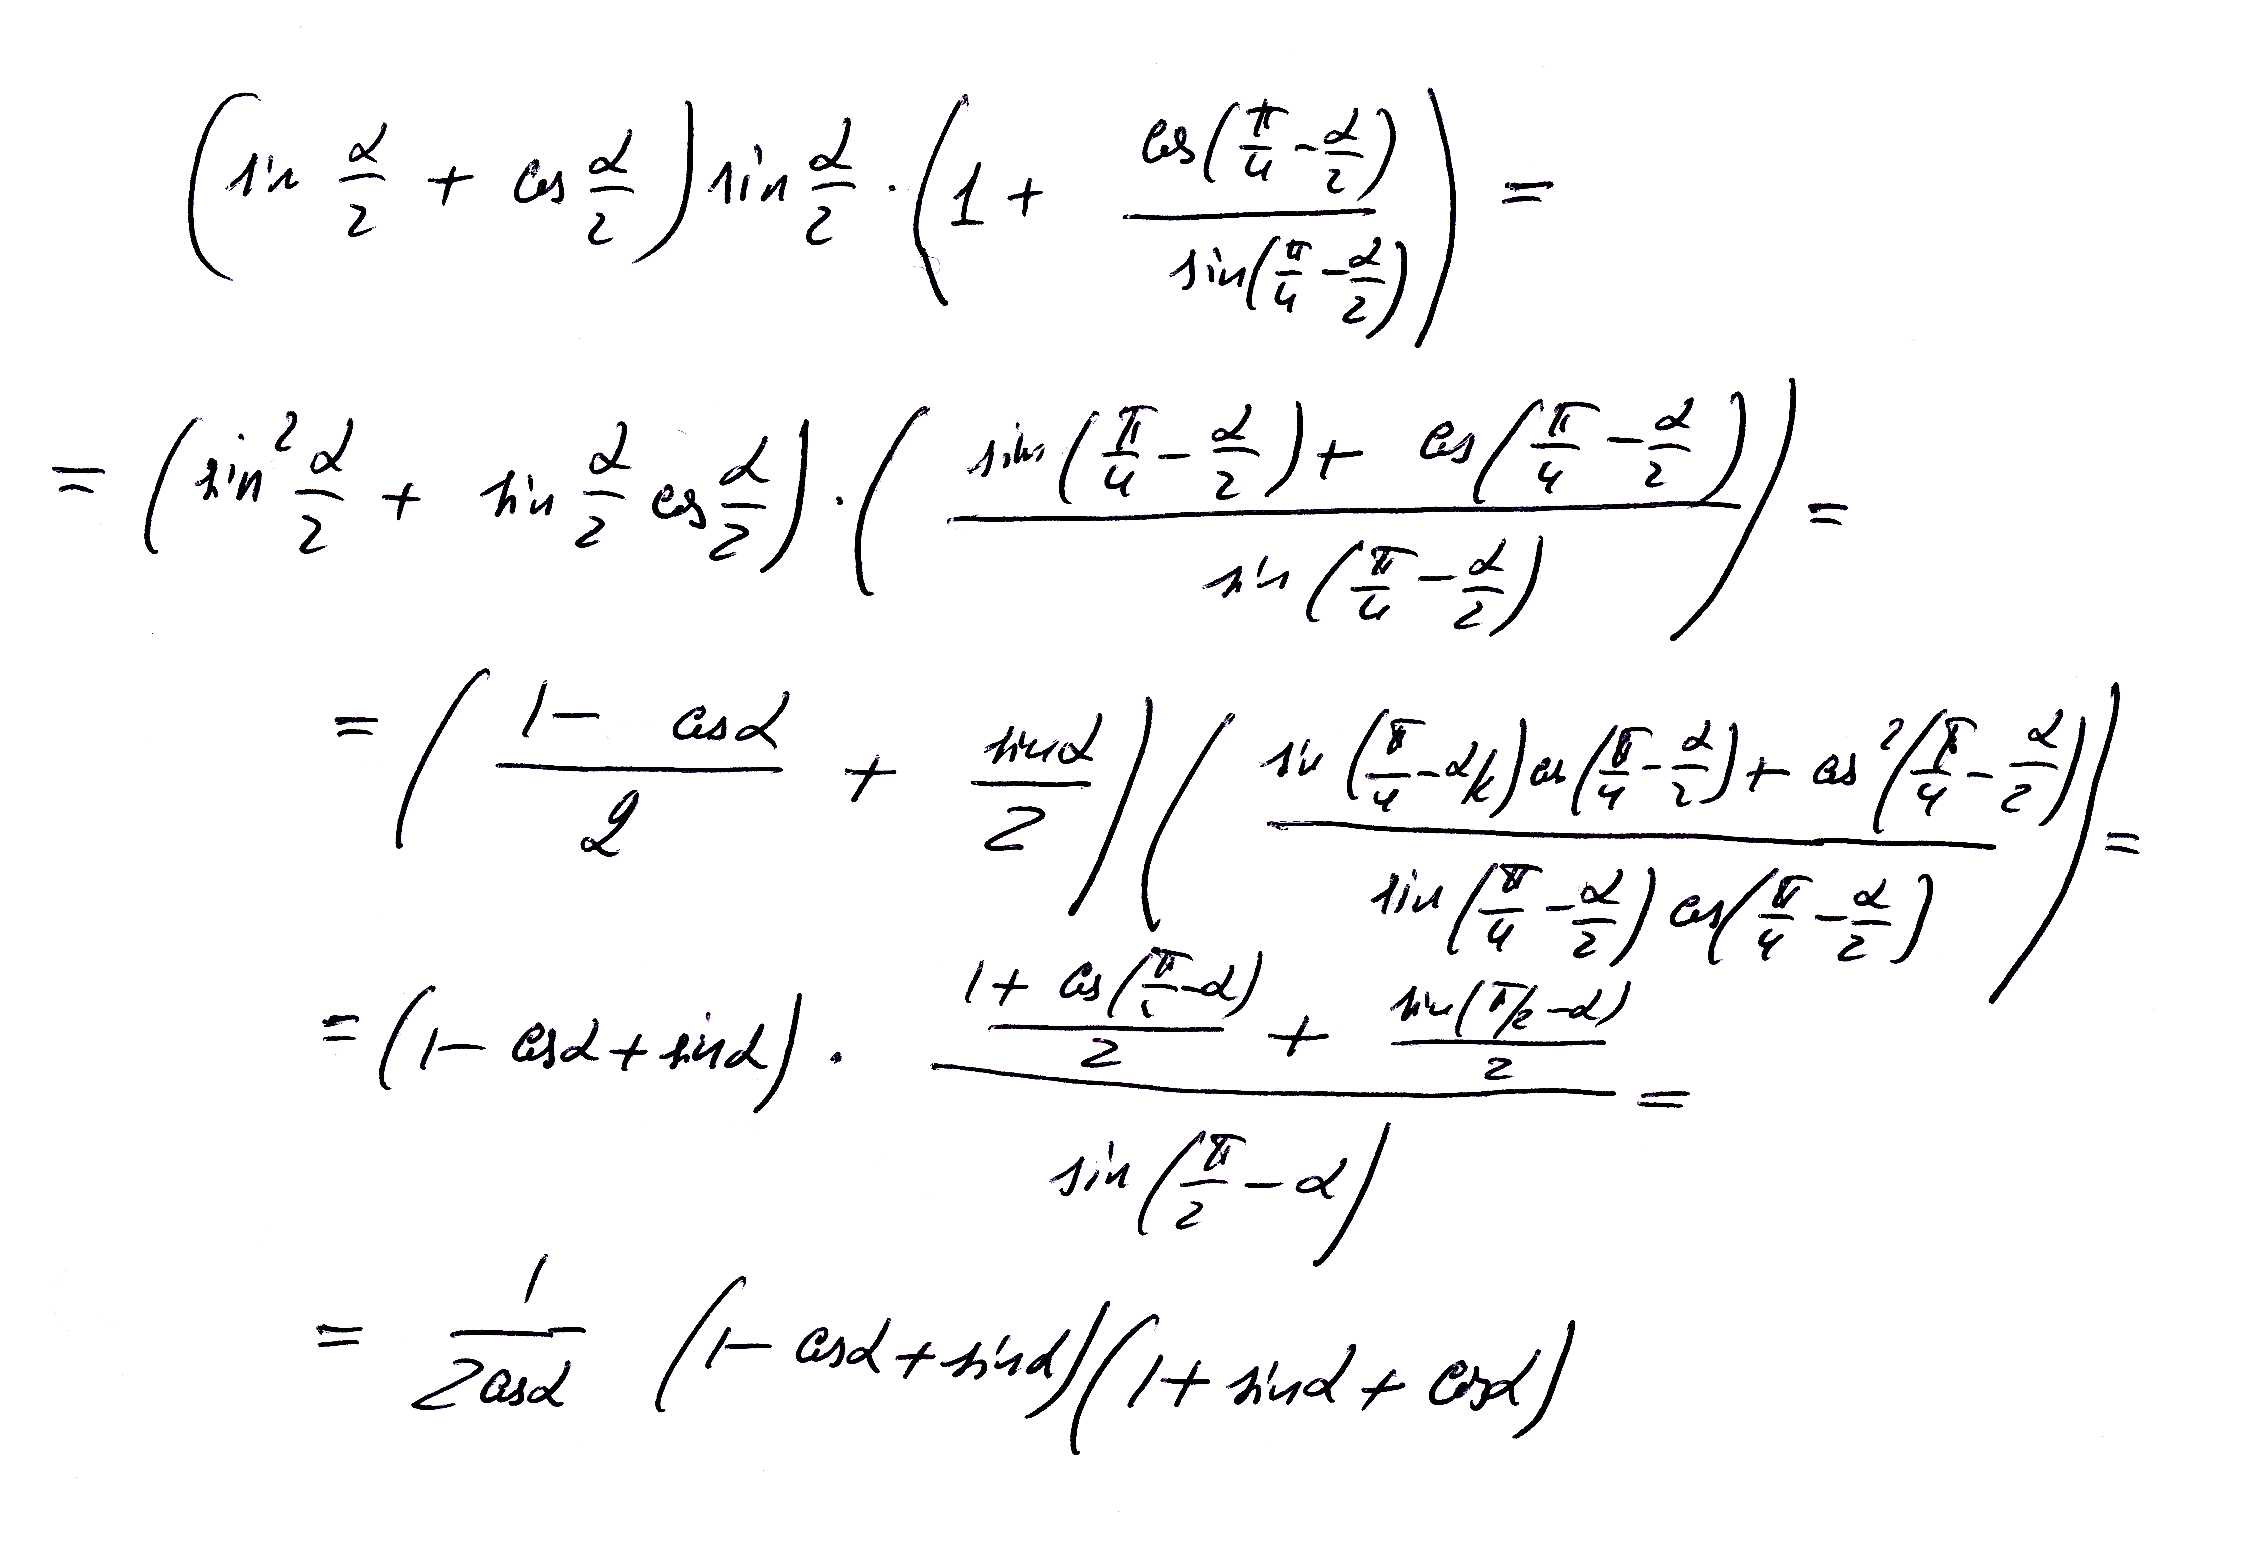 (sin α/2 + cos α/2) sin α/2 · (1 + cos(π/4 − α/2) / sin(π/4 − α/2)) =
= (sin² α/2 + sin α/2 cos α/2) · ((sin(π/4 − α/2) + cos(π/4 − α/2)) / sin(π/4 − α/2)) =
= ((1 − cosα)/2 + sinα/2) ((sin(π/4 − α/2) cos(π/4 − α/2) + cos²(π/4 − α/2)) / (sin(π/4 − α/2) cos(π/4 − α/2))) =
= (1 − cosα + sinα) · ((1 + cos(π/2 − α))/2 + sin(π/2 − α)/2) / sin(π/2 − α) =
= 1/(2cosα) (1 − cosα + sinα)(1 + sinα + cosα)